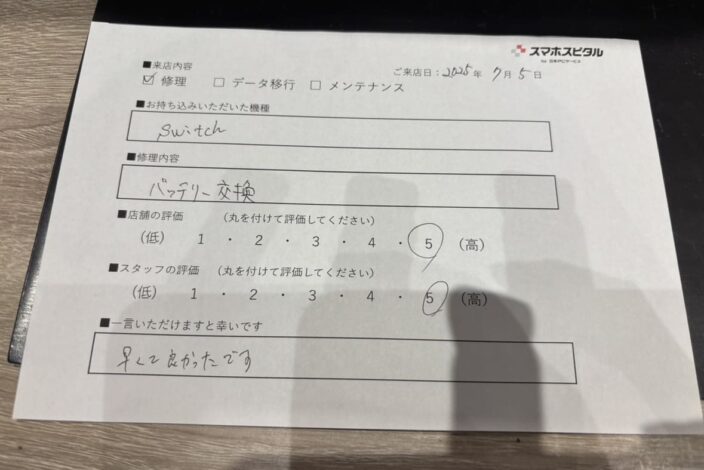 スマホスピタル
by 日本PCサービス
■来店内容
ご来店日：2025年 7月 5日
☑ 修理 □ データ移行 □ メンテナンス
■お持ち込みいただいた機種
switch
■修理内容
バッテリー交換
■店舗の評価 （丸を付けて評価してください）
（低） 1 ・ 2 ・ 3 ・ 4 ・ 5 （高）
■スタッフの評価 （丸を付けて評価してください）
（低） 1 ・ 2 ・ 3 ・ 4 ・ 5 （高）
■一言いただけますと幸いです
早くて良かったです